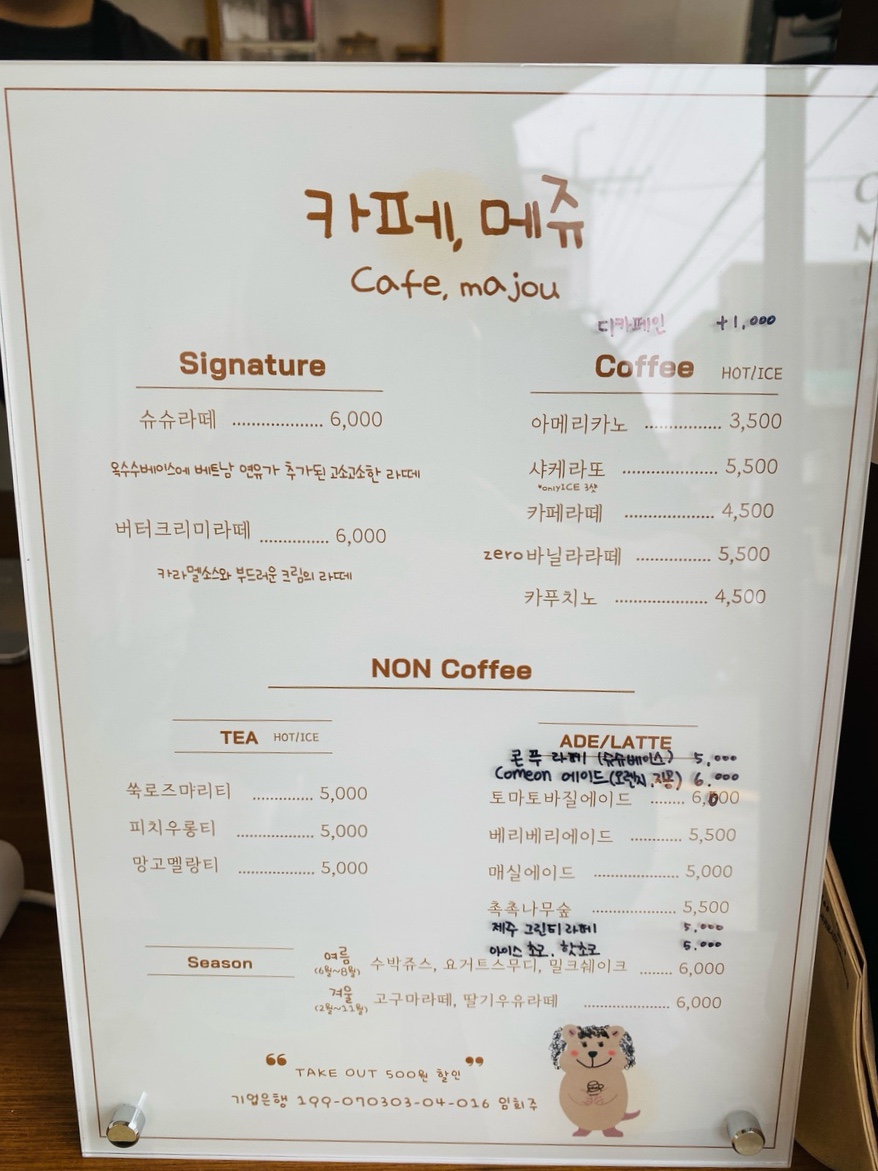 카페, 메쥬
Cafe, majou
디카페인 +1,000
Signature
슈슈라떼 .................... 6,000
옥수수베이스에 베트남 연유가 추가된 고소고소한 라떼
버터크리미라떼 ............... 6,000
카라멜소스와 부드러운 크림의 라떼
Coffee HOT/ICE
아메리카노 ................ 3,500
샤케라또 ..................... 5,500
*onlyICE 3샷
카페라떼 .................... 4,500
zero바닐라라떼 ................ 5,500
카푸치노 .................... 4,500
NON Coffee
TEA HOT/ICE
쑥로즈마리티 ............... 5,000
피치우롱티 ................... 5,000
망고멜랑티 ................... 5,000
ADE/LATTE
콘푸라떼 (슈슈베이스) 5,000
Comeon 에이드(오렌지,자몽) 6,000
토마토바질에이드 ........ 6,000
베리베리에이드 ............... 5,500
매실에이드 .................... 5,000
촉촉나무숲 .................... 5,500
제주 그린티라떼 5,000
아이스 초코, 핫초코 5,000
Season
여름 (6월~8월) 수박쥬스, 요거트스무디, 밀크쉐이크 ........ 6,000
겨울 (2월~11월) 고구마라떼, 딸기우유라떼 ................... 6,000
“ TAKE OUT 500원 할인 ”
기업은행 199-070303-04-016 임희주